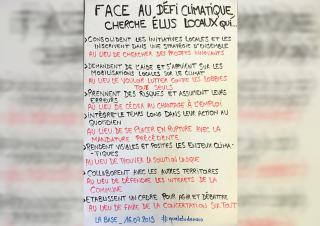 FACE AU DÉFI CLIMATIQUE,
CHERCHE ÉLUS LOCAUX qui...
CONSOLIDENT LES INITIATIVES LOCALES ET LES
INSCRIVENT DANS UNE STRATÉGIE D'ENSEMBLE
AU LIEU DE CHERCHER DES PROJETS INNOVANTS
DEMANDENT DE L'AIDE ET S'APPUIENT SUR LES
MOBILISATIONS LOCALES SUR LE CLIMAT
AU LIEU DE VOULOIR LUTTER CONTRE LES LOBBIES
TOUT SEULS
PRENNENT DES RISQUES ET ASSUMENT LEURS
ERREURS
AU LIEU DE CÉDER AU CHANTAGE À L'EMPLOI
INTÈGRENT LE TEMPS LONG DANS LEUR ACTION AU
QUOTIDIEN
AU LIEU DE SE PLACER EN RUPTURE AVEC LA
MANDATURE PRÉCÉDENTE
RENDENT VISIBLES ET POSITIFS LES ENJEUX CLIMA-
TIQUES
AU LIEU DE TROUVER LA SOLUTION UNIQUE
COLLABORENT AVEC LES AUTRES TERRITOIRES
AU LIEU DE DÉFENDRE LES INTERETS DE LA
COMMUNE
ETABLISSENT UN CADRE POUR AGIR ET DÉBATTRE
AU LIEU DE FAIRE DE LA CONCERTATION SUR TOUT
LA BASE _ 16.07.2019